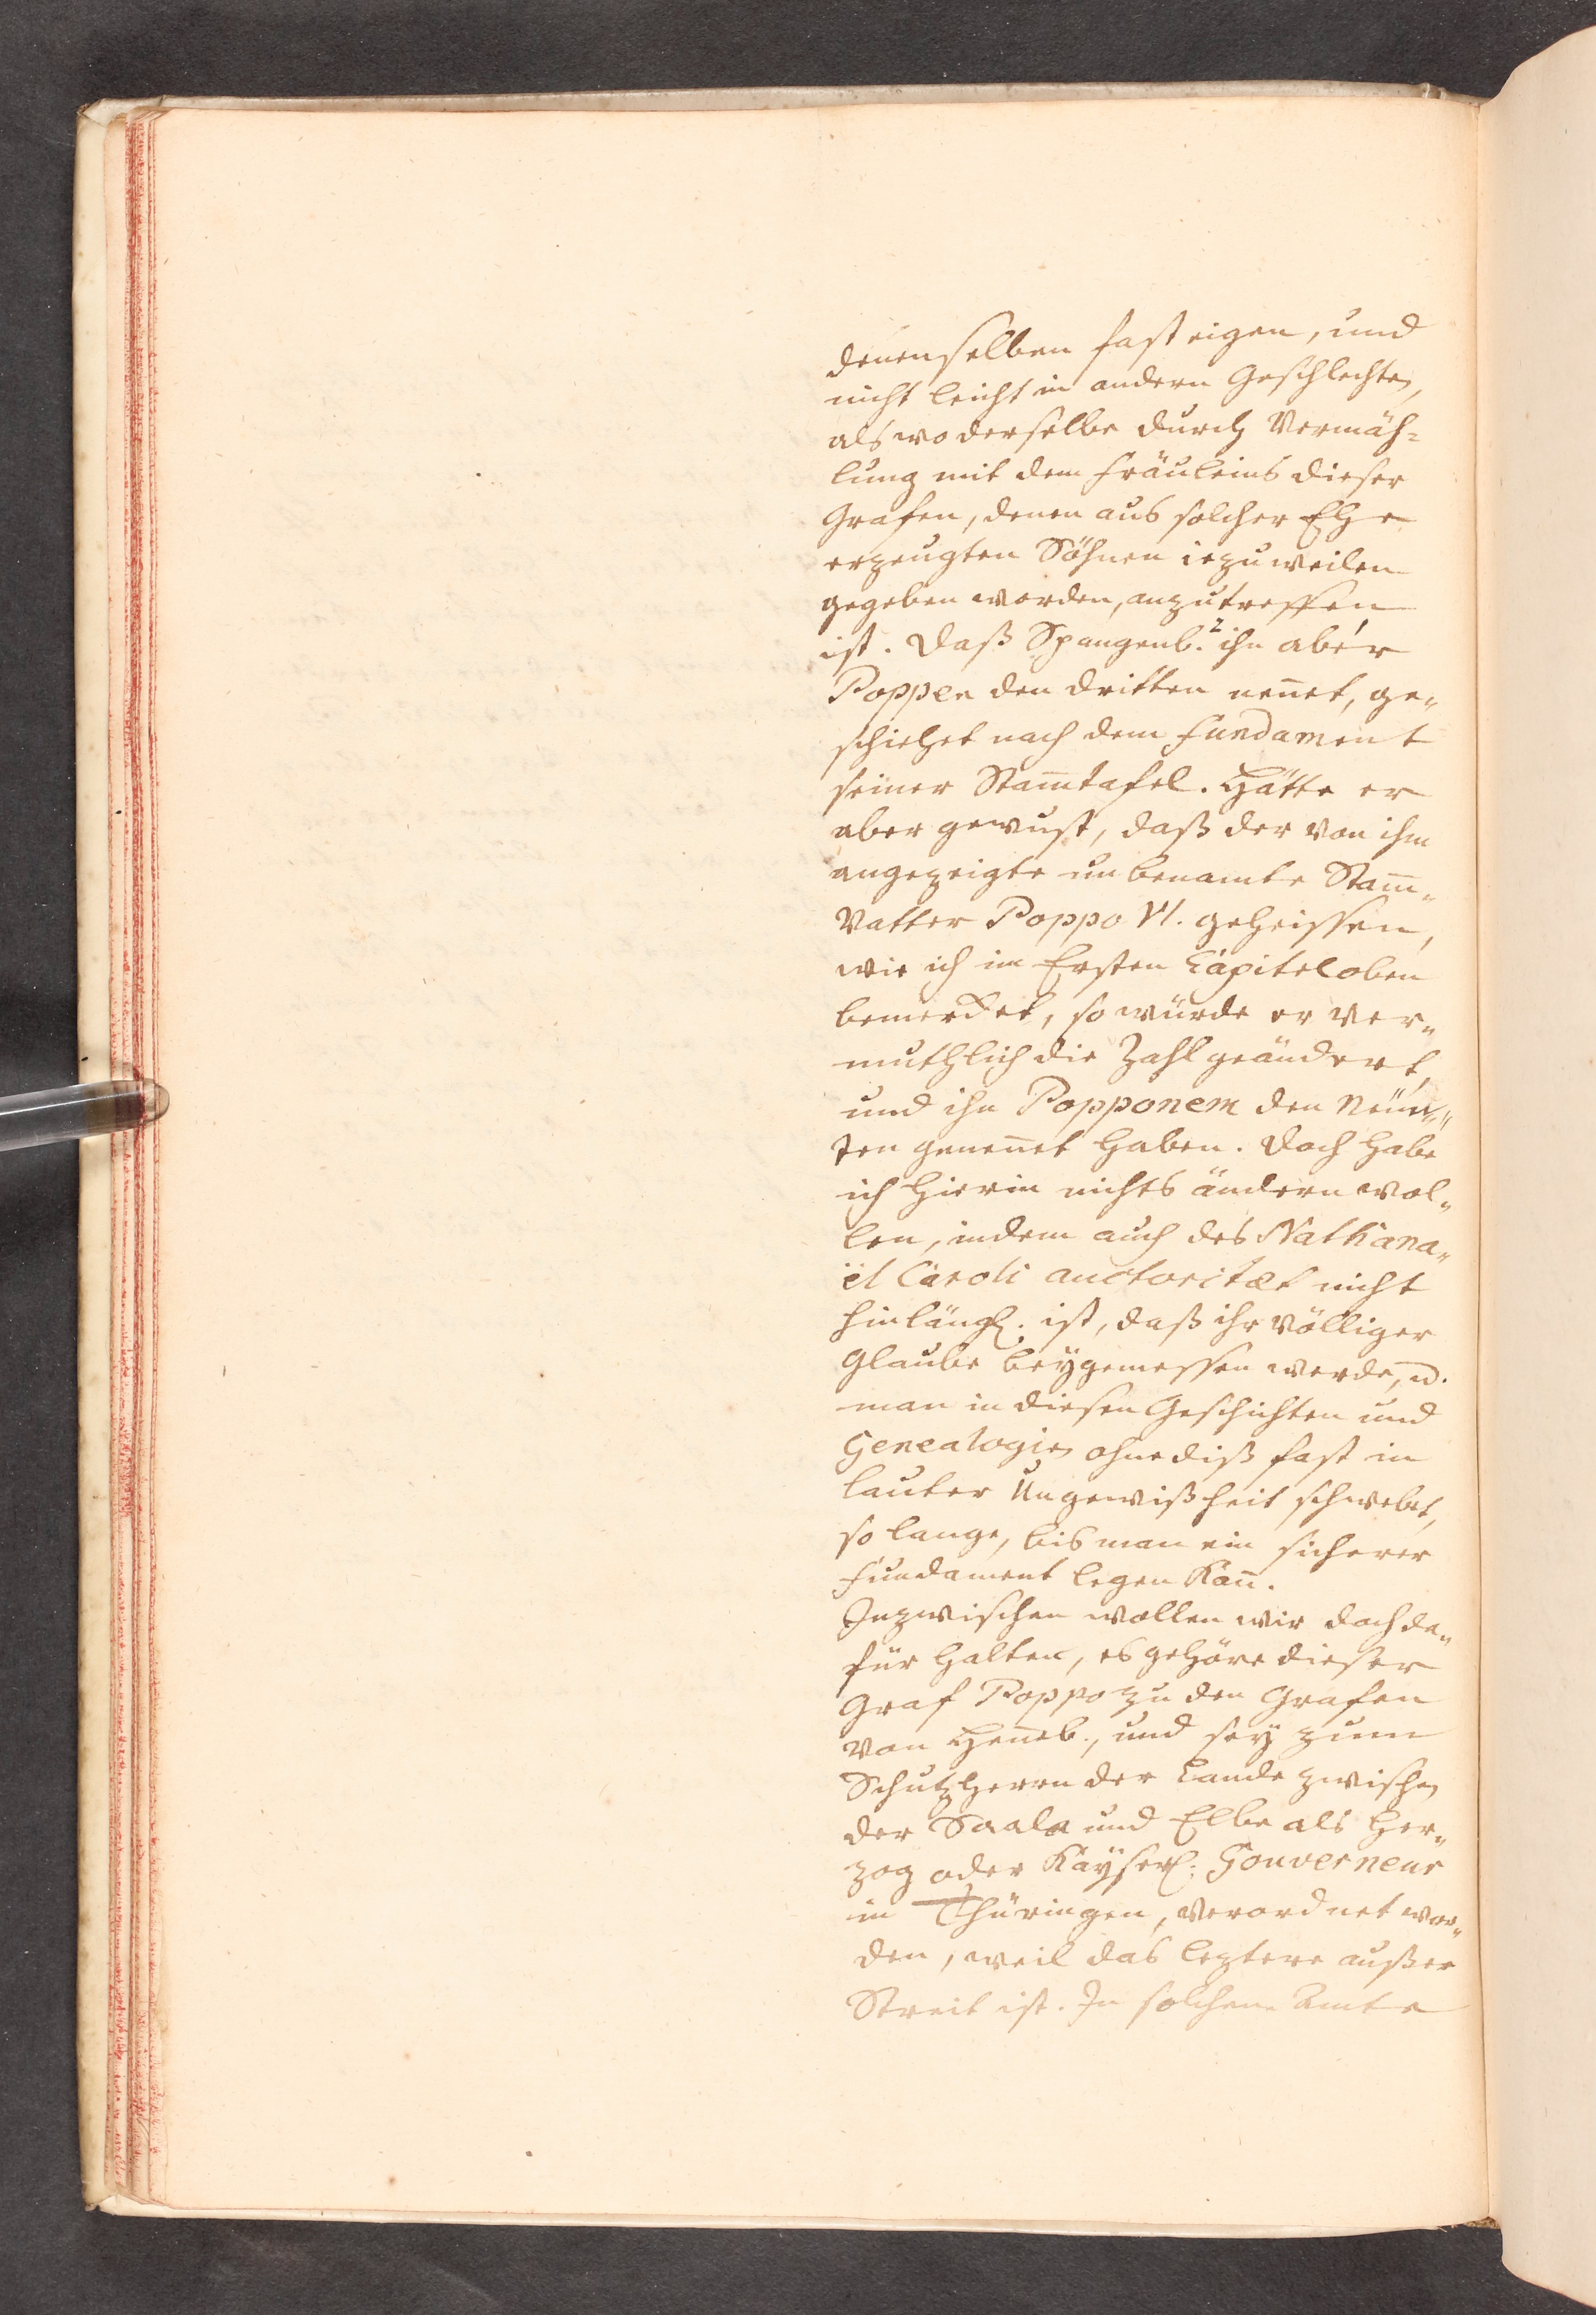 denenselben fast eigen, und
nicht leicht in andern Geschlechten,
als wo derselbe durch Vermäh-
lung mit dem Fräuleins dieser
Grafen, denen aus solcher Ehe
erzeugten Söhnen iezuweilen
gegeben worden, anzutreffen
ist. Daß Spangenb. ihn aber
Poppen den dritten nennet, ge-
schiehet nach dem Fundament
seiner Stam̅tafel. Hätte er
aber gewust, daß der von ihm
angezeigte unbenamte Stam̅-
Vatter Poppo VI. geheissen,
wie ich im Ersten Capitel oben
bemercket, so würde er ver-
muthlich die Zahl geändert,
und ihn Popponem den Neün-
ten genen̅et haben. Doch habe
ich hierin nichts ändern wol-
len, indem auch des Nathana-
ël Caroli auctoritæt nicht
hinlängl. ist, daß ihr völliger
Glaube beygemessen werde, u.
man in diesen Geschichten und
Genealogien ohne diß fast in
lauter Ungewißheit schwebet,
so lange, bis man ein sicherer
Fundament legen kan̅.
Inzwischen wollen wir doch da-
für halten, es gehöre dieser
Graf Poppo zu den Grafen
von Hen̅eb., und sey zum
Schutzherrn der Lande zwischen
der Saale und Elbe als Her-
zog oder Kayserl. Gouverneur
in Thüringen, verordnet wor-
den, weil das leztere außer
Streit ist. In solchem Amte